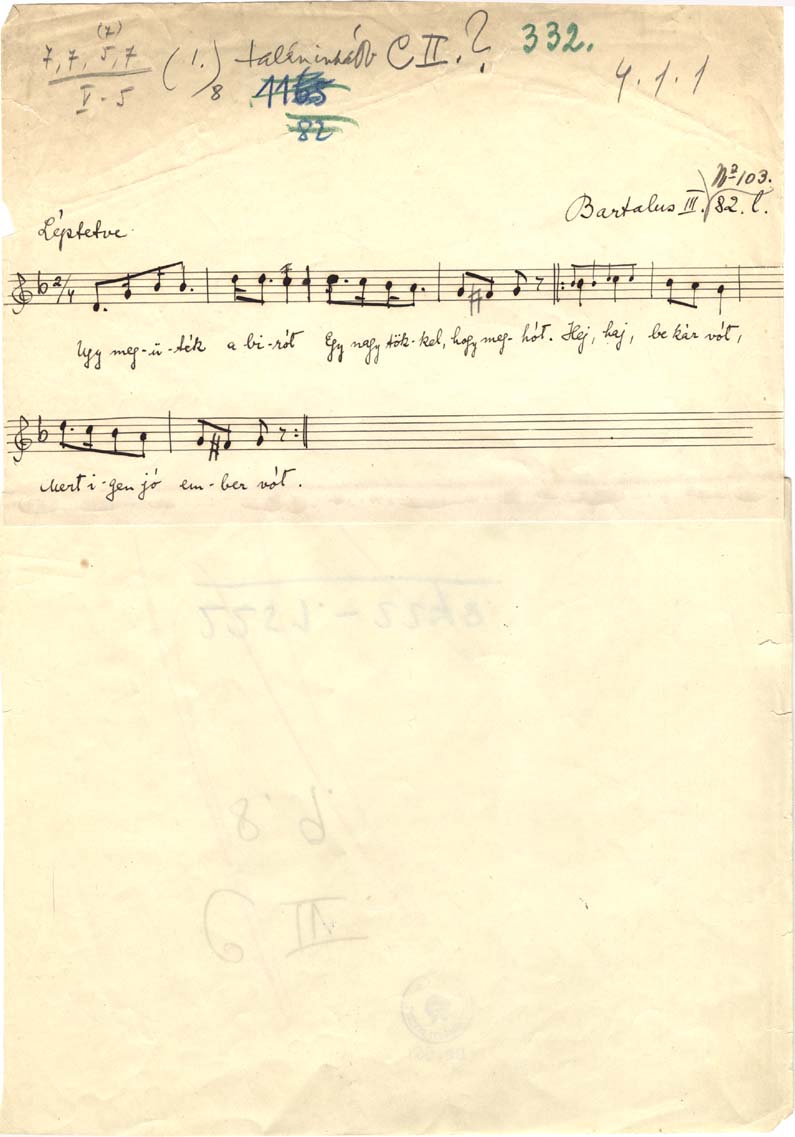 (7)
7, 7, 5, 7 (1.) talán inkább C II.? 332.
V - 5 8 1165 4.1.1
82
No 103.
Bartalus III. 82. l.
Léptetve.
2/4
Ugy meg-ü-ték a bi-rót Egy nagy tök-kel, hogy meg-hót. Hej, haj, be kár vót,
Mert i-gen jó em-ber vót.